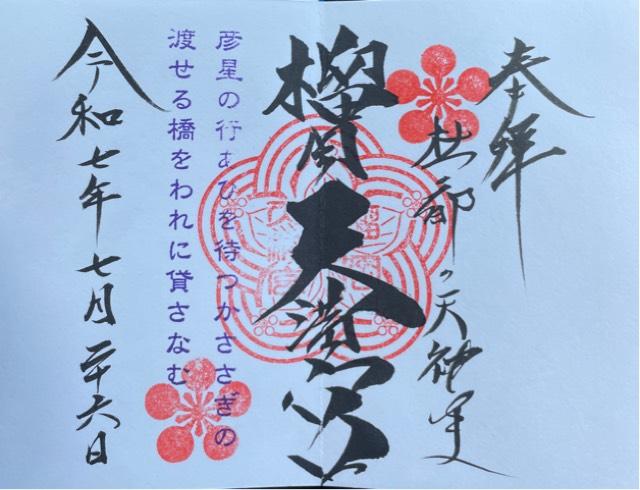 奉拝
杜の都の天神さま
榴岡天満宮
彦星の行あひを待つかささぎの
渡せる橋をわれに貸さなむ
令和七年七月二十六日